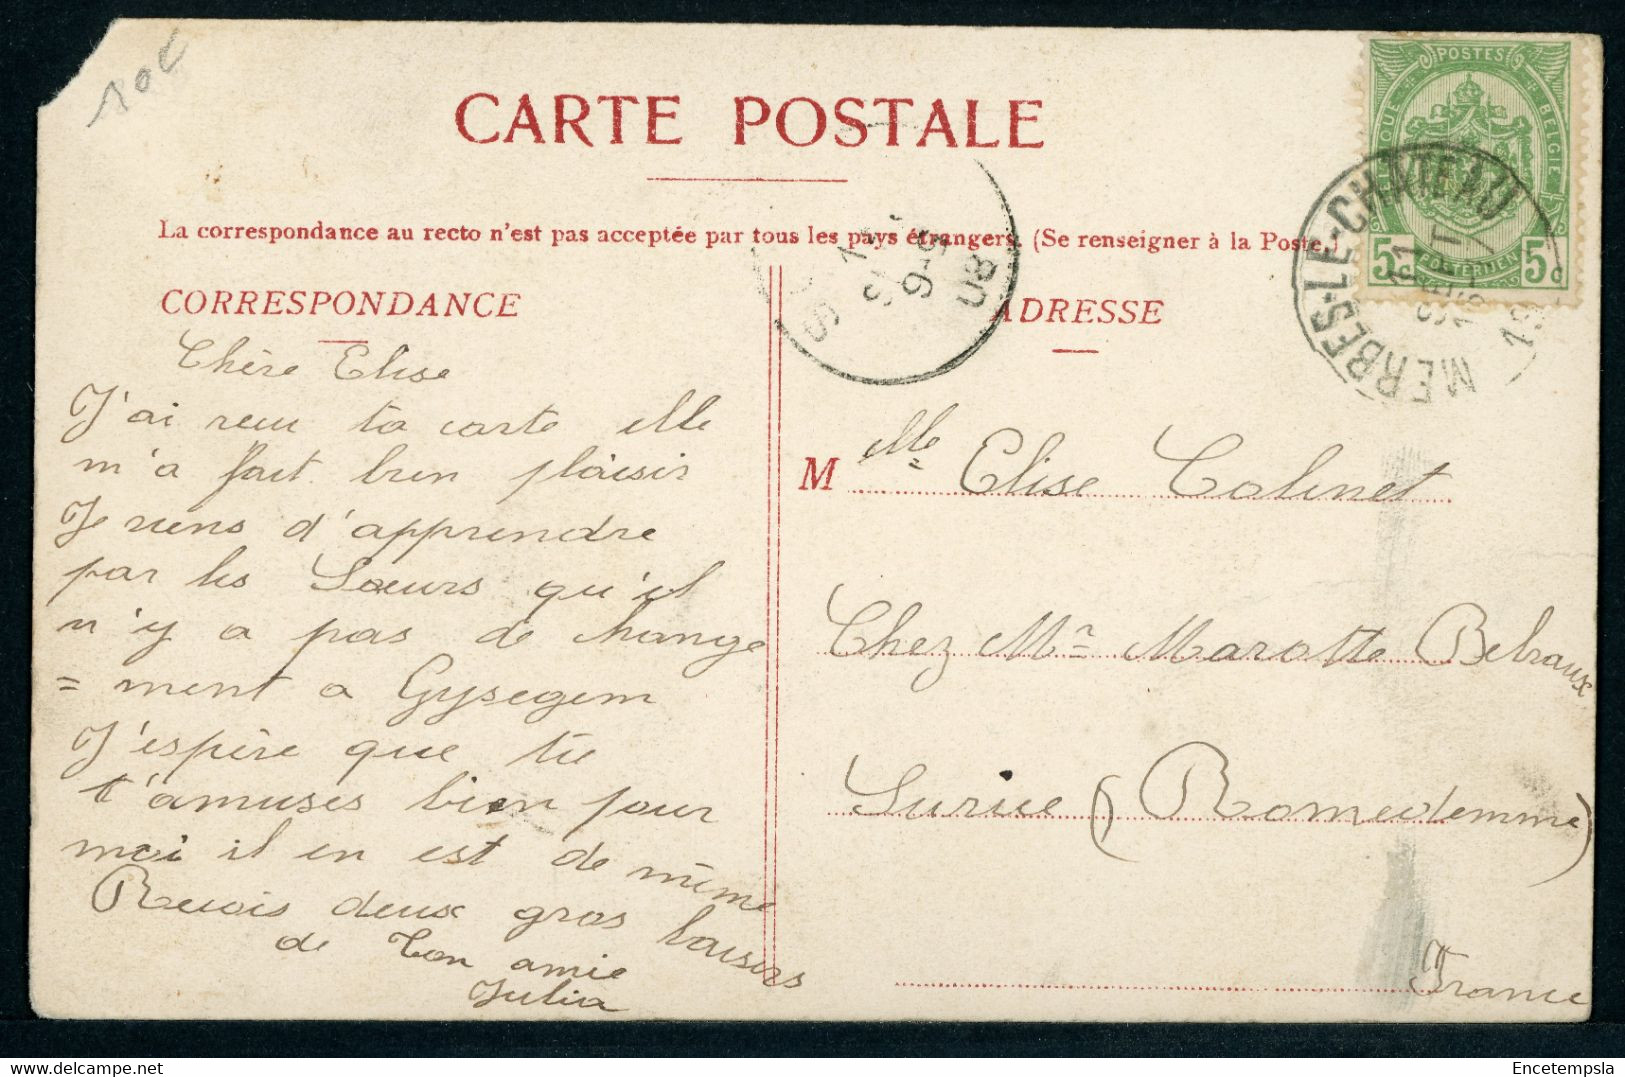 10€
CARTE POSTALE
La correspondance au recto n'est pas acceptée par tous les pays étrangers. (Se renseigner à la Poste.)
CORRESPONDANCE
Chère Elise
J'ai recu ta carte elle
m'a fait bien plaisir
Je viens d'apprendre
par les Sœurs qu'il
n'y a pas de change
= ment a Gysegem
J'espère que tu
t'amuses bien pour
moi il en est de même
Recois deux gros baisers
de Ton amie
Julia
ADRESSE
Mlle Elise Colinet
Chez Mr Marotte Belvaux
Surice (Romedenne)
France
POSTES
BELGIQUE BELGIE
POSTERIJEN
5c 5c
MERBES-LE-CHATEAU
11
SEPT
9-S
08
Encetempsla